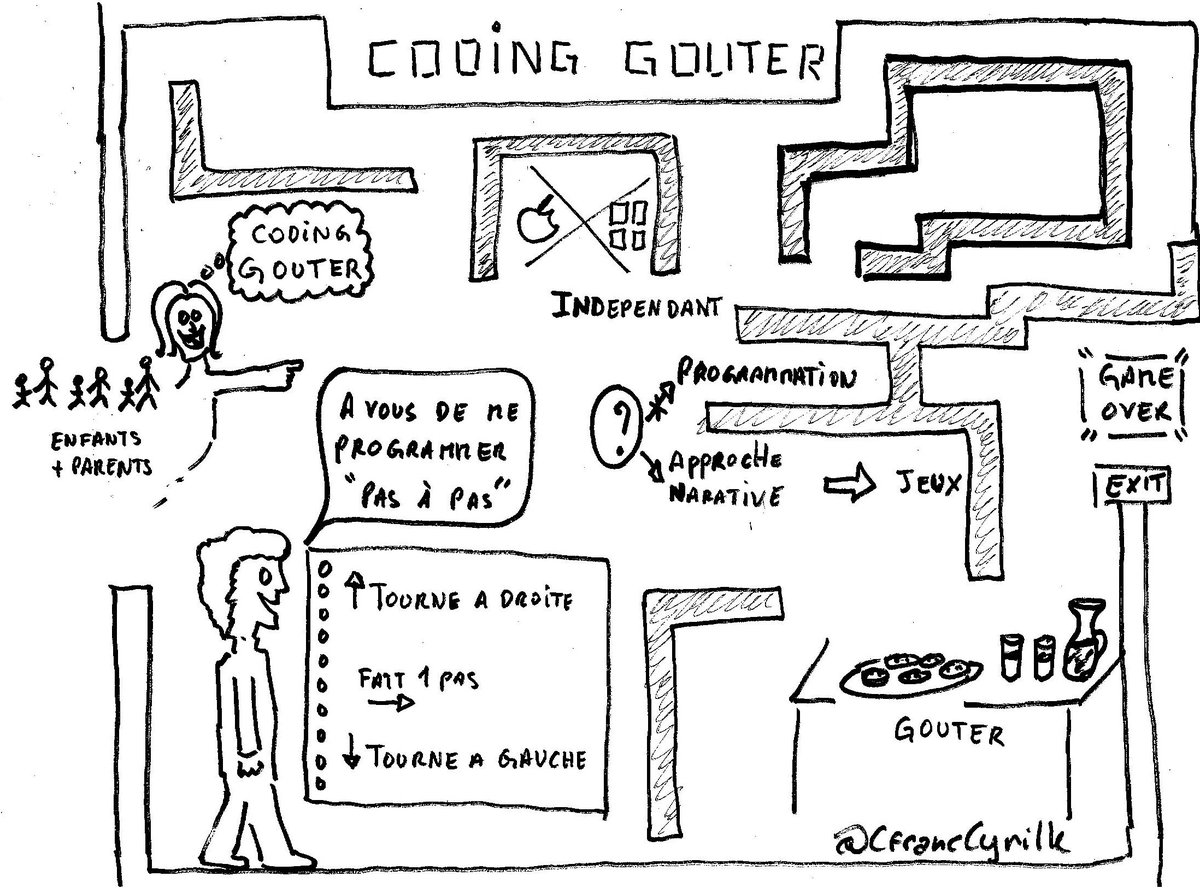 CODING GOUTER
CODING
GOUTER
INDEPENDANT
ENFANTS
+ PARENTS
A VOUS DE ME
PROGRAMMER
"PAS À PAS"
?
PROGRAMMATION
APPROCHE
NARATIVE
JEUX
GAME
OVER
EXIT
TOURNE A DROITE
FAIT 1 PAS
TOURNE A GAUCHE
GOUTER
@CFrancCyrille